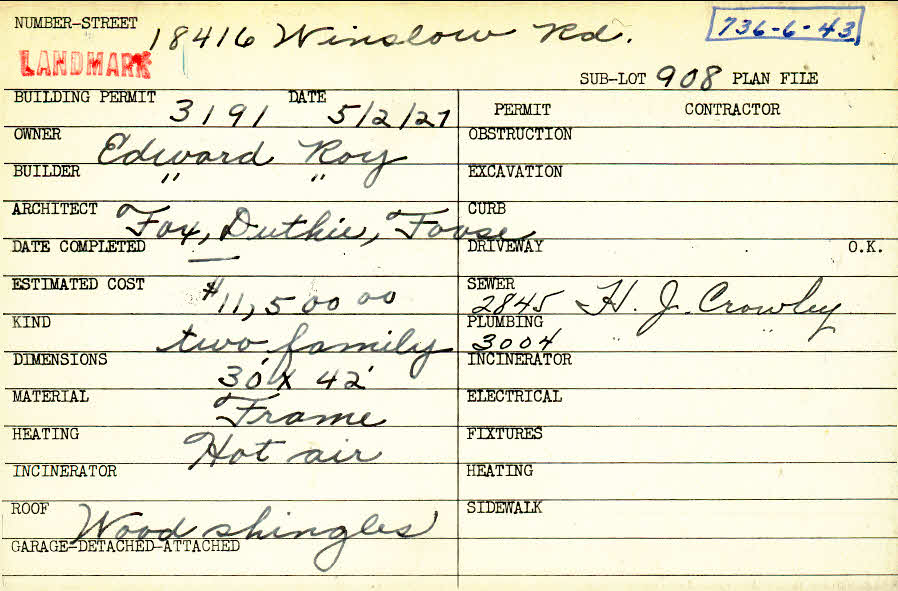 NUMBER-STREET 18416 Winslow Rd. 736-6-43
LANDMARK
SUB-LOT 908 PLAN FILE
BUILDING PERMIT 3191 DATE 5/2/27
PERMIT CONTRACTOR
OWNER Edward Roy
OBSTRUCTION
BUILDER " "
EXCAVATION
ARCHITECT Fox, Duthie, Foose
CURB
DATE COMPLETED —
DRIVEWAY O.K.
ESTIMATED COST $11,500 00
SEWER 2845 H. J. Crowley
KIND two family
PLUMBING 3004 " "
DIMENSIONS 30' x 42'
INCINERATOR
MATERIAL Frame
ELECTRICAL
HEATING Hot air
FIXTURES
INCINERATOR
HEATING
ROOF Wood shingles
SIDEWALK
GARAGE-DETACHED-ATTACHED